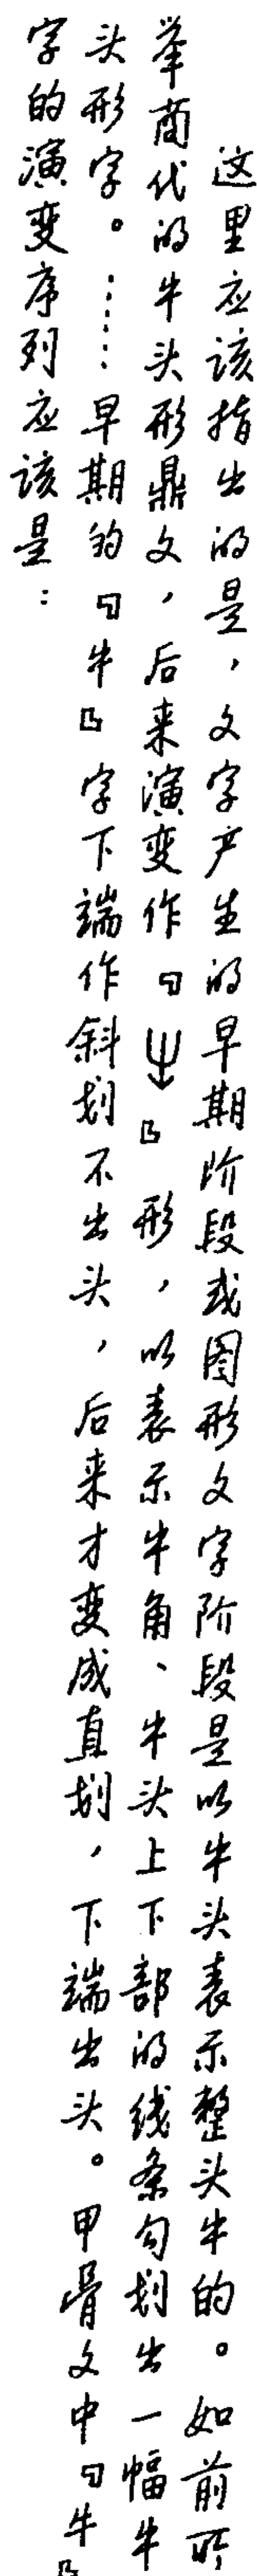 这里应该指出的是，文字产生的早期阶段或图形文字阶段是以牛头表示整头牛的。如前所
举商代的牛头形鼎文，后来演变作﹃﹄形，以表示牛角、牛头上下部的线条勾划出一幅牛
头形字。……早期的﹃牛﹄字下端作斜划不出头，后来才变成直划，下端出头。甲骨文中﹃牛﹄
字的演变序列应该是：